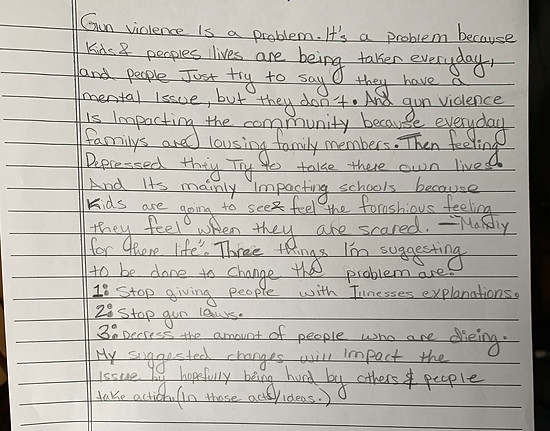 Gun violence Is a problem. It's a problem because
Kids & peoples lives are being taken everyday,
and people Just try to say they have a
mental Issue, but they don't. And gun violence
Is Impacting the community because everyday
familys are lousing family members. Then feeling
Depressed they Try to take there own lives.
And Its mainly Impacting schools because
Kids are going to see & feel the feeling
they feel when they are scared. —"Mostly
for there life". Three things I'm suggesting
to be done to change the problem are:
1: Stop giving people with Illnesses explanations.
2: Stop gun laws.
3: Decress the amount of people who are dieing.
My suggested changes will Impact the
Issue by hopefully being hurd by others & people
take action. (In those acts/ideas.)